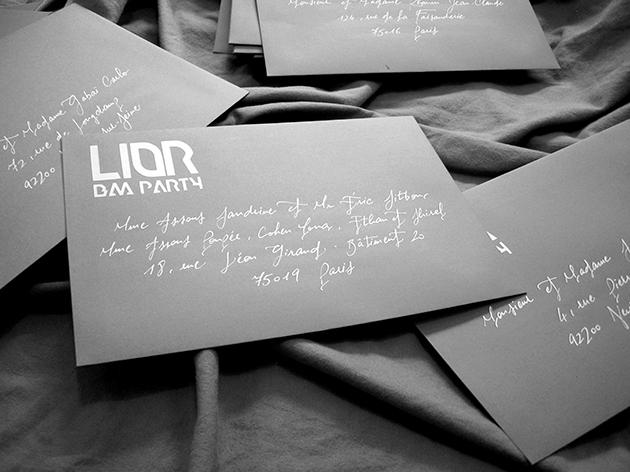 Monsieur et Madame Jean-Claude
124, rue de la Faisanderie
75016 Paris
et Madame Gabaï Carlo
72, rue de Longchamp
92200 sur-Seine
LIOR
BM PARTY
Mme Assous Sandrine et Mr Éric Sitbon
Mme Assous Poupée, Cohen Yona, Ethan et Shirel
18, rue Léon Giraud. Bâtiment 20
75019 Paris
Monsieur et Madame
4, rue
92200